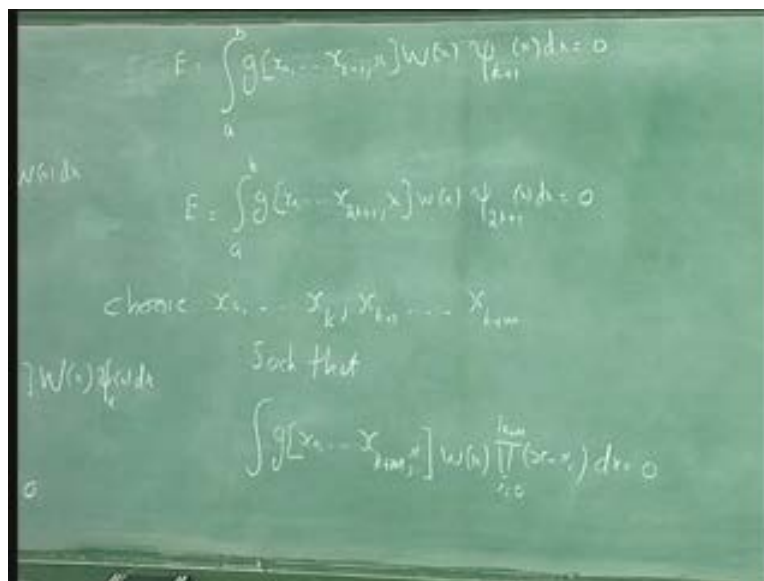 E = ∫_a^b g[x₀ ... x_{k+1}, x] W(x) ψ_{k+1}(x) dx = 0
W(x) dx
E = ∫_a^b g[x₀ ... x_{2k+1}, x] W(x) ψ_{2k+1}(x) dx = 0
choose x₀ ... x_k, x_{k+1} ... x_{k+m}
] W(x) ψ_k(x) dx
Such that
∫ g[x₀ ... x_{k+m}, x] W(x) ∏_{i=0}^{k+m} (x - x_i) dx = 0
0